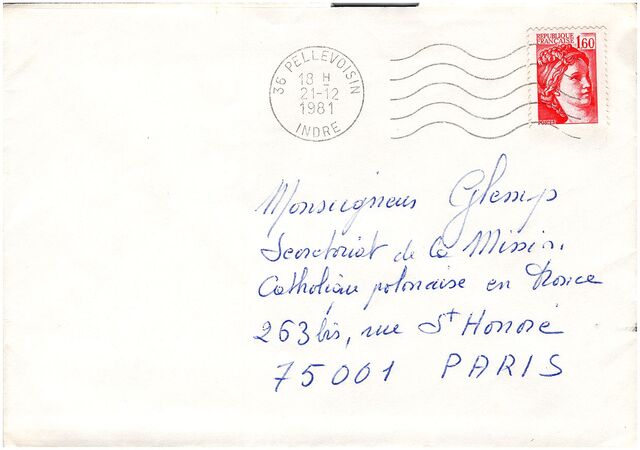 36 PELLEVOISIN
18 H
21-12
1981
INDRE
REPUBLIQUE
FRANÇAISE 1,60
POSTES
Monseigneur Glemp
Secretariat de la Mission
Catholique polonaise en France
263 bis, rue St Honoré
75001 PARIS